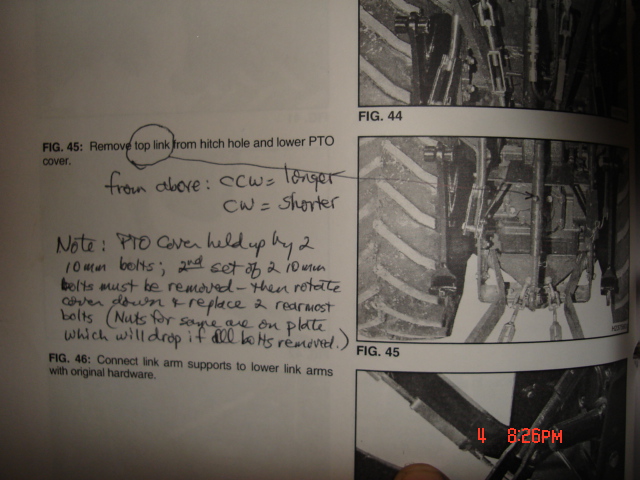 FIG. 44
FIG. 45: Remove top link from hitch hole and lower PTO
cover.
from above: CCW = longer
CW = shorter
Note: PTO Cover held up by 2
10mm bolts; 2nd set of 2 10mm
bolts must be removed – then rotate
cover down & replace 2 rearmost
bolts (Nuts for same are on plate
which will drop if all bolts removed.)
FIG. 45
FIG. 46: Connect link arm supports to lower link arms
with original hardware.
4 8:26PM